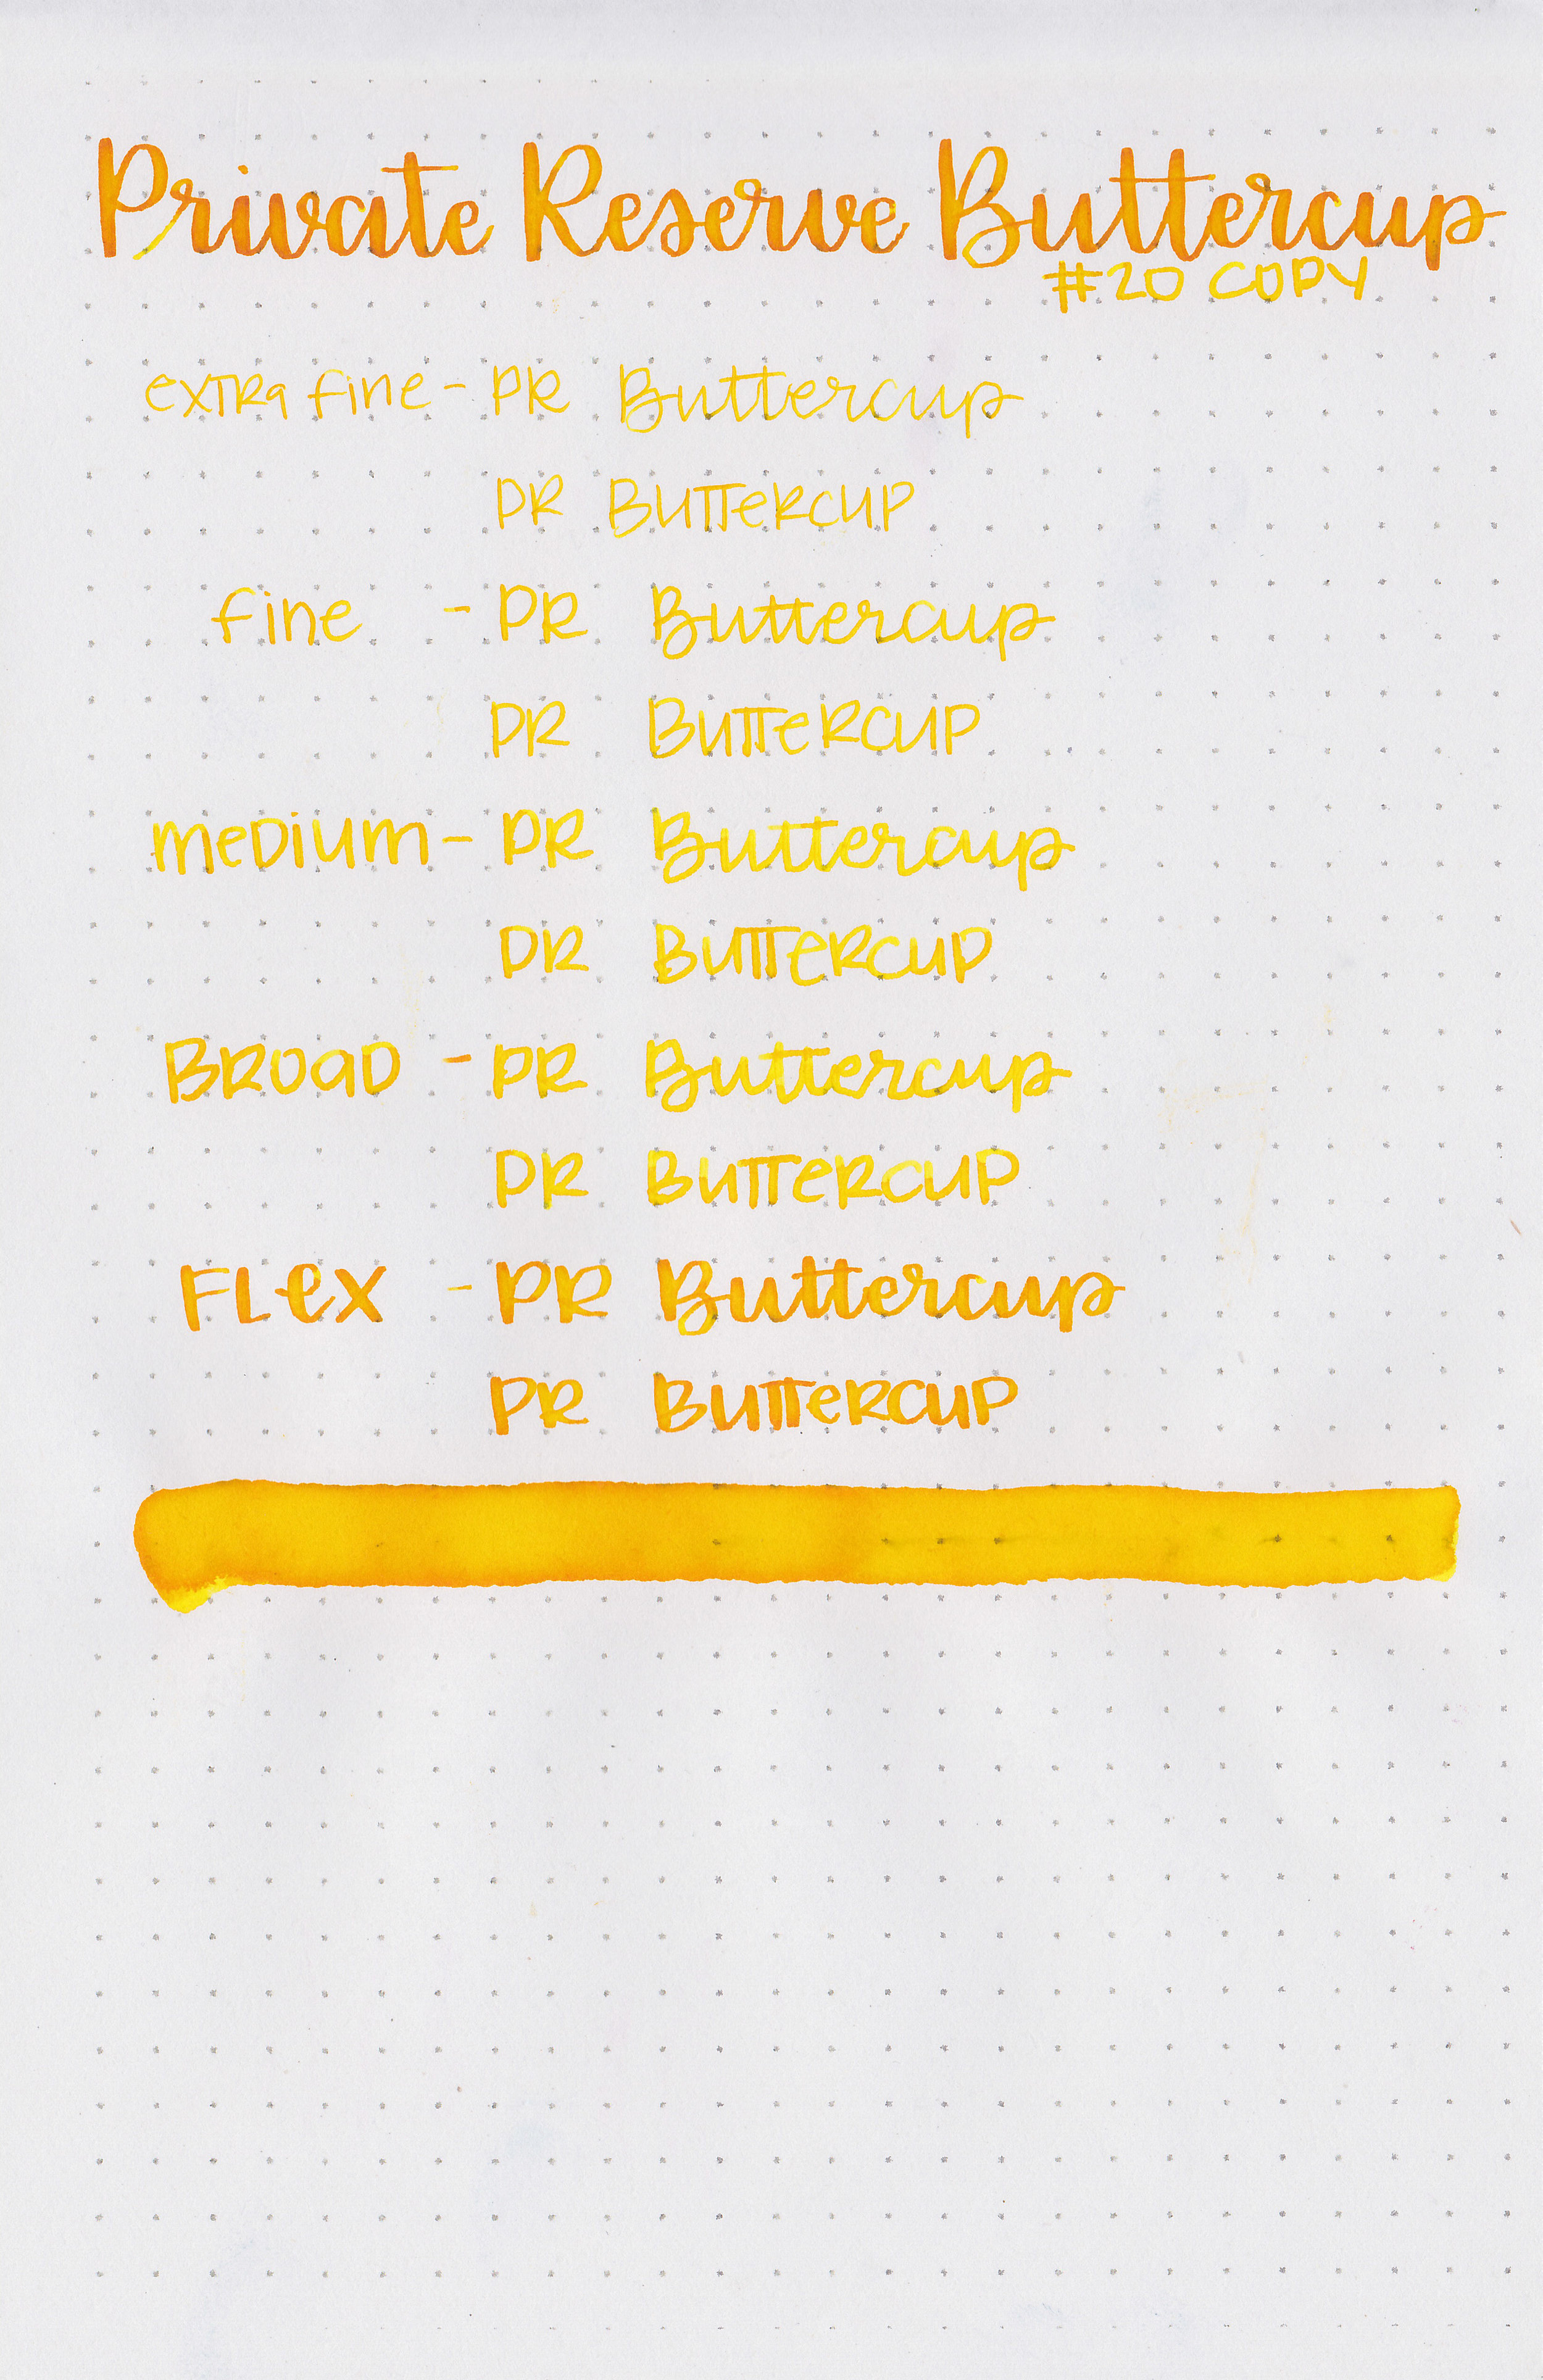 Private Reserve Buttercup
#20 COPY
extra fine - PR Buttercup
PR Buttercup
fine - PR Buttercup
PR Buttercup
medium - PR Buttercup
PR Buttercup
Broad - PR Buttercup
PR Buttercup
Flex - PR Buttercup
PR Buttercup